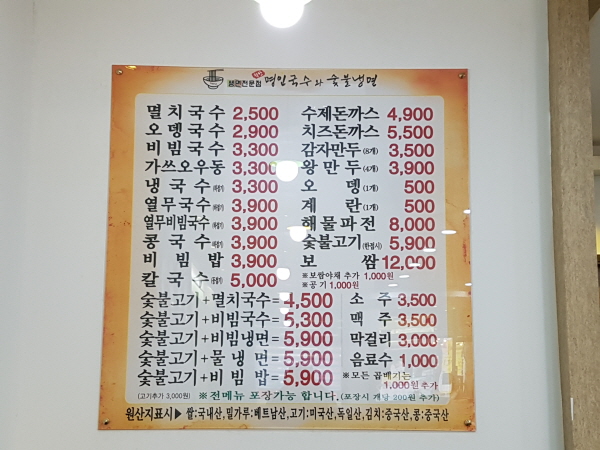 생면전문점 명인국수와 숯불냉면
멸치국수 2,500
오뎅국수 2,900
비빔국수 3,300
가쓰오우동 3,300
냉국수 3,300
열무국수 3,900
열무비빔국수 3,900
콩국수 3,900
비빔밥 3,900
칼국수 5,000
수제돈까스 4,900
치즈돈까스 5,500
감자만두(8개) 3,500
왕만두(4개) 3,900
오뎅(1개) 500
계란(1개) 500
해물파전 8,000
숯불고기(한접시) 5,900
보쌈 12,000
※보쌈야채 추가 1,000원
※공기 1,000원
숯불고기+멸치국수= 4,500
숯불고기+비빔국수= 5,300
숯불고기+비빔냉면= 5,900
숯불고기+물냉면= 5,900
숯불고기+비빔밥= 5,900
소주 3,500
맥주 3,500
막걸리 3,000
음료수 1,000
※모든 곱배기는
1,000원 추가
(고기추가 3,000원) ※전메뉴 포장가능 합니다.(포장시 개당 200원 추가)
원산지표시▶쌀:국내산,밀가루:베트남산,고기:미국산,독일산,김치:중국산,콩:중국산